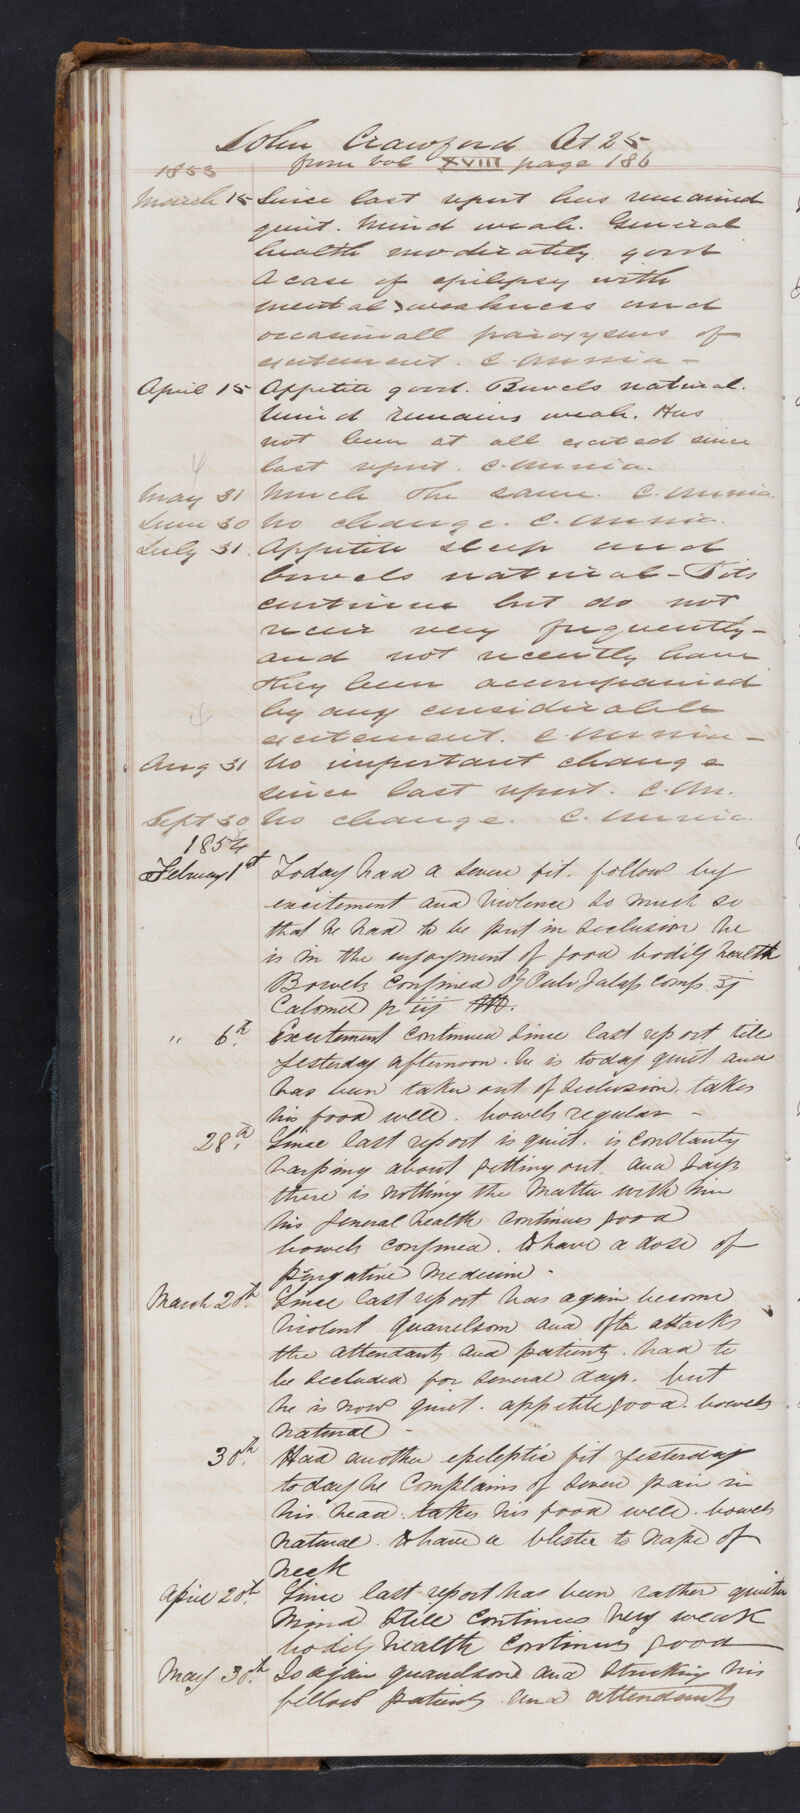 John Crawford Æt 25
1853 from vol XVIII page 186
March 15 Since last report has remained
quiet. Mind weak. General
health moderately good
A case of epilepsy with
mental weakness and
occasionall paroxysms of
excitement.
April 15 Appetite good. Bowels natural.
Mind remains weak. Has
not been at all excited since
last report.
May 31 Much the same.
June 30 No change.
July 31. Appetite sleep and
bowels natural - Fits
continue but do not
recur very frequently -
and not recently have
they been accompanied
by any considerable
excitement.
Aug 31 No important change
since last report.
Sept 30 No change.
1854
Februay 1st Today had a severe fit. follow by
excitement and violence so much so
that he had to be put in seclusion he
is in the enjoyment of good bodily health
Bowels confined Pulv Jalap Comp ʒj
Calomel gr iij
" 6th. Excitement continued since last report till
yesterday afternoon. he is today quiet and
has been taken out of seclusion. takes
his food well. bowels regular -
28th. Since last report is quiet. is constantly
harping about getting out. and says
there is nothing the matter with him
his general health continues good
bowels confined. To have a dose of
purgative medicine -
March 20th. Since last report has again become
violent quarrelsom and often attacks
the attendants and patients. had to
be secluded for several days. but
he is now quiet. appetite good. bowels
natural -
30th. Had another epileptic fit yesterday
today he complains of severe pain in
his head. takes his food well. bowels
natural. To have a blister to nape of
neck
April 20th. Since last report has been rather quieter
Mind still continues very weak
bodily health continues good
May 30th. Is again quarrelsome and striking his
fellow patients and attendants